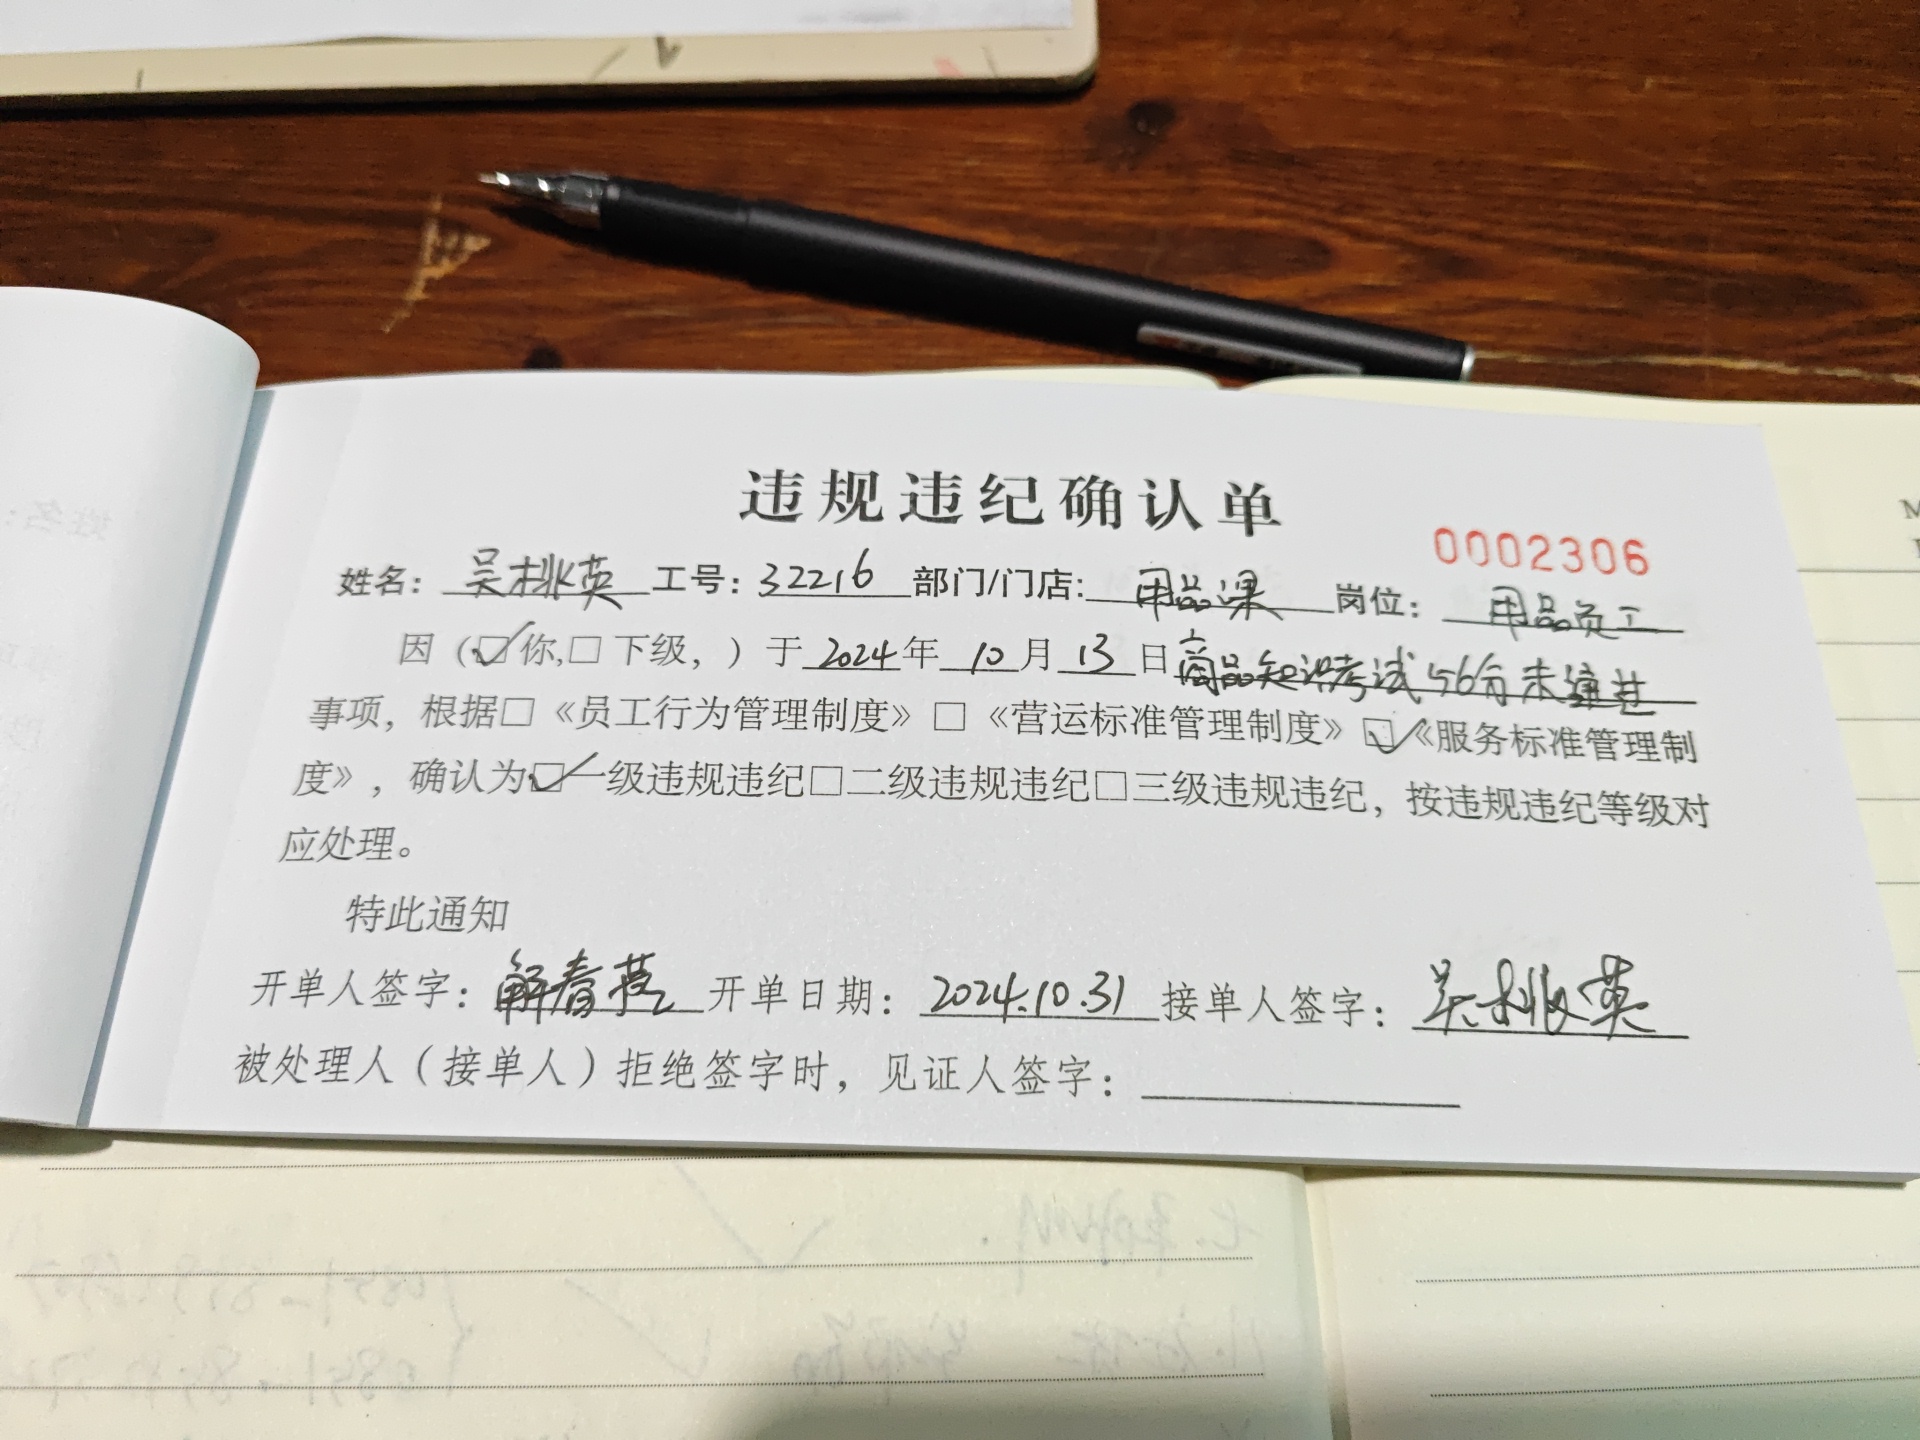 违规违纪确认单
0002306
姓名：吴桃英 工号：32216 部门/门店：用品课 岗位：用品员工
因（☑你,□下级，）于2024年10月13日商品知识考试56分未通过
事项，根据□《员工行为管理制度》□《营运标准管理制度》☑《服务标准管理制
度》，确认为☑一级违规违纪□二级违规违纪□三级违规违纪，按违规违纪等级对
应处理。
特此通知
开单人签字：解春艺 开单日期：2024.10.31 接单人签字：吴桃英
被处理人（接单人）拒绝签字时，见证人签字：